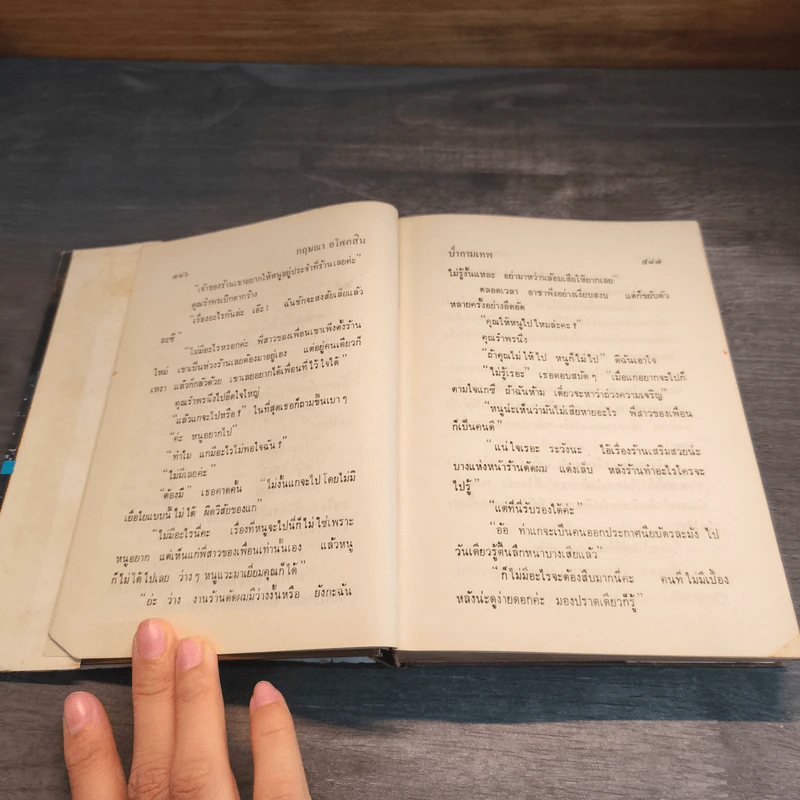 ๕๘๖
กฤษณา อโศกสิน
“เจ้าของร้านเขาอยากให้หนูอยู่ประจำที่ร้านเลยค่ะ”
คุณรำพรเบิกตากว้าง
“เรื่องอะไรกันล่ะ เอ๊ะ! ฉันชักจะสงสัยเสียแล้ว
ละซี”
“ไม่มีอะไรหรอกค่ะ พี่สาวของเพื่อนเขาเพิ่งตั้งร้าน
ใหม่ เขาเป็นห่วงร้านเลยต้องมาอยู่เอง แต่อยู่คนเดียวก็
เหงา แล้วก็กลัวด้วย เขาเลยอยากได้เพื่อนที่ไว้ใจได้”
คุณรำพรนิ่งไปอึดใจใหญ่
“แล้วแกจะไปหรือ?” ในที่สุดเธอก็ถามขึ้นเบา ๆ
“ค่ะ หนูอยากไป”
“ทำไม แกมีอะไรไม่พอใจฉัน?”
“ไม่มีเลยค่ะ”
“ต้องมี” เธอคาดคั้น “ไม่งั้นแกจะไปโดยไม่มี
เยื่อใยแบบนี้ไม่ได้ ผิดวิสัยของแก”
“ไม่มีอะไรนี่คะ เรื่องที่หนูจะไปนี่ก็ไม่ใช่เพราะ
หนูอยาก แต่เห็นแก่พี่สาวของเพื่อนเท่านั้นเอง แล้วหนู
ก็ไม่ได้ไปเลย ว่าง ๆ หนูแวะมาเยี่ยมคุณก็ได้”
“ย่ะ ว่าง งานร้านดัดผมมีว่างงั้นหรือ ยังกะฉัน
ป่ากามเทพ
๕๘๗
ไม่รู้งั้นแหละ อย่ามาหว่านล้อมเสียให้ยากเลย”
ตลอดเวลา อาชาฟังอย่างเงียบสงบ แต่ก็ขยับตัว
หลายครั้งอย่างอึดอัด
“คุณให้หนูไปไหมล่ะคะ?”
คุณรำพรนิ่ง
“ถ้าคุณไม่ให้ไป หนูก็ไม่ไป” ดิฉันเอาใจ
“ไม่รู้เรอะ” เธอตอบสบัด ๆ “เมื่อแกอยากจะไปก็
ตามใจแกซี ถ้าฉันห้าม เดี๋ยวจะหาว่าถ่วงความเจริญ”
“หนูน่ะเห็นว่ามันไม่เสียหายอะไร พี่สาวของเพื่อน
ก็เป็นคนดี”
“แน่ใจเรอะ ระวังนะ ไอ้เรื่องร้านเสริมสวยน่ะ
บางแห่งหน้าร้านดัดผม แต่งเล็บ หลังร้านทำอะไรใครจะ
ไปรู้”
“แต่ที่นี่รับรองได้ค่ะ”
“อ้อ ท่าแกจะเป็นคนออกประกาศนียบัตรละมัง ไป
วันเดียวรู้ตื้นลึกหนาบางเสียแล้ว”
“ก็ไม่มีอะไรจะต้องสืบมากนี่คะ คนที่ไม่มีเบื้อง
หลังน่ะดูง่ายดอกค่ะ มองปราดเดียวก็รู้”